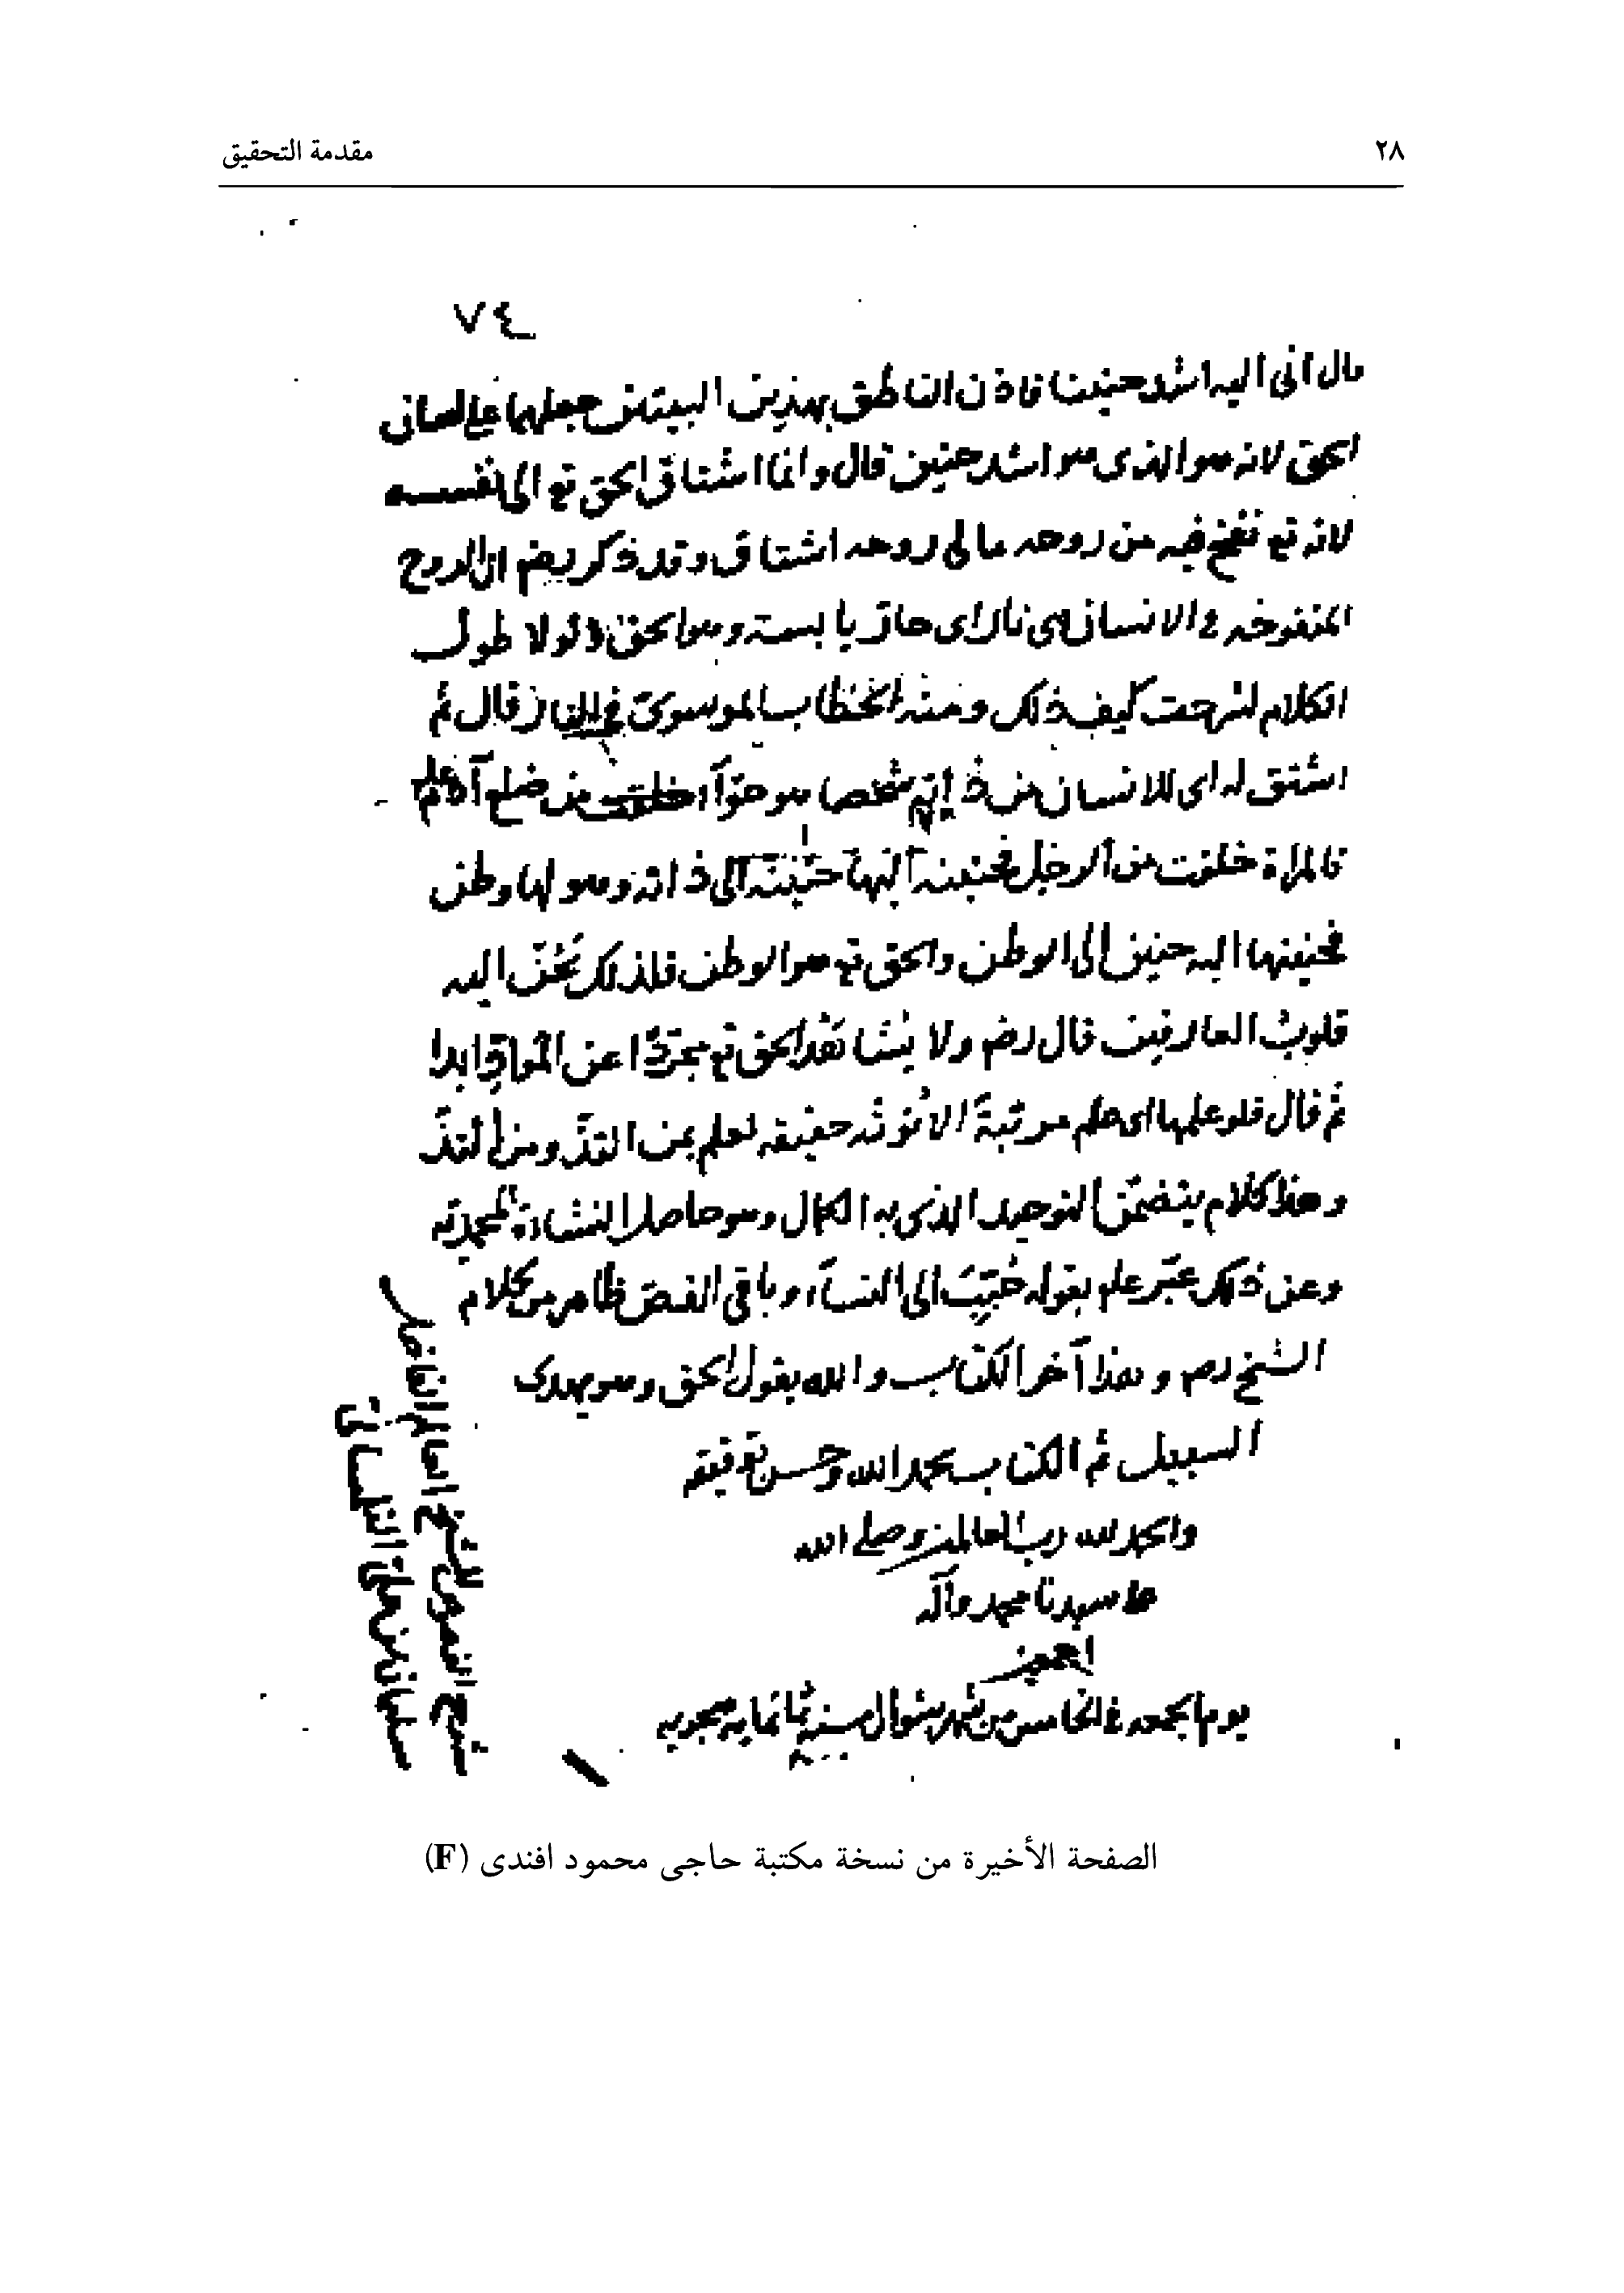 ٢٨
مقدمة التحقيق
٧٤
قال انى اليه اشد حنينا فاذن الناطق بهذين البيتين جعلهما على لسان
الحق لانه هو الذى هو اشد حنين قال وانما اشتاق الحق تع الى نفسه
لانه تع نفخ فيه من روحه فالى روحه اشتاق وقد ذكر رضه ان الروح
المنفوخه فى الانسان هى نار اى حار يابسة وهو الحق ولولا طول
الكلام لشرحت كيف ذلك ومنه الخطاب الموسوى فى النار قال ثم
اشتق له اى للانسان من ذاته شخصا هو حوآء خلقت من ضلع آدم علم
فالمراة خلقت من الرجل فحنينه اليها حنينه الى ذاته وهو لها وطن
فحنينها اليه حنين الى الوطن والحق تع هو الوطن فلذلك تحنّ اليه
قلوبُ العارفين قال رضه ولا يشاهَد الحق تع مجردًا عن الموادّ ابدا
ثم قال فلو علمها اى علم مرتبةَ الانُوثه حقيقه لعلم بمن التذّ ومن التذّ
وهذا كلام يتضمّن التوحيد الذى به الكمال وهو حاصل النشاءة المحمديّه
وعن ذلك عبّر علم بقوله حُبّبَ الى النسآء وباقى الفصّ ظاهر من كلام
الشيخ رضه وهذا آخر الكتاب والله يقول الحق وهو يهدى
السبيل تم الكتاب بحمد الله وحسن توفيقه
والحمد لله ربّ العالمين وصلى الله
على سيدنا محمد وآله
اجمعين
يوم الجمعه فى الخامس من شهر شوال سنه ثمانمايه هجريه
شرح الفصوص للشيخ العالم الفاضل
سليمان التلمسانى
الصفحة الأخيرة من نسخة مكتبة حاجى محمود افندى (F)